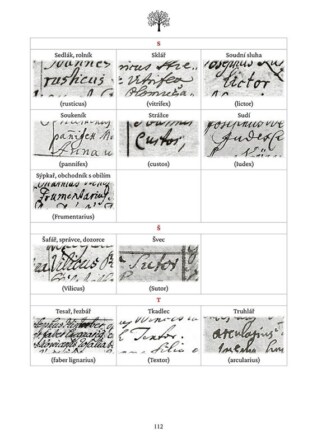 S
Sedlák, rolník
Sklář
Soudní sluha
Joannes
rusticus
Vitrifex
lictor
(rusticus)
(vitrifex)
(lictor)
Soukeník
Strážce
Sudí
pannifex
Anna
Custos,
Judex
(pannifex)
(custos)
(Iudex)
Sýpkař, obchodník s obilím
Frumentarius
(Frumentarius)
Š
Šafář, správce, dozorce
Švec
Vilicus
Sutor
(Vilicus)
(Sutor)
T
Tesař, řezbář
Tkadlec
Truhlář
faber lignarius
Textor.
arcularius
(faber lignarius)
(Textor)
(arcularius)
112